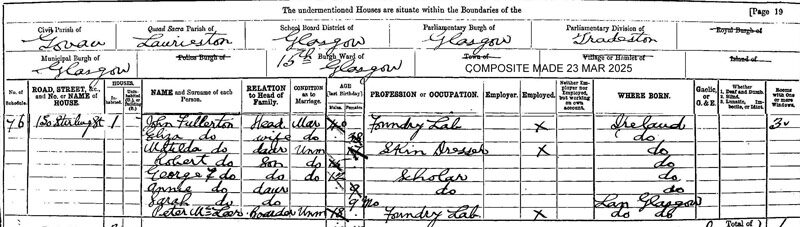 The undermentioned Houses are situate within the Boundaries of the
[Page 19
Civil Parish of Govan
Quoad Sacra Parish of Laurieston
School Board District of Glasgow
Parliamentary Burgh of Glasgow
Parliamentary Division of Tradeston
Royal Burgh of
Municipal Burgh of Glasgow
Police Burgh of
15th Burgh Ward of Glasgow
Town of
Village or Hamlet of
Island of
COMPOSITE MADE 23 MAR 2025
No. of Schedule.
ROAD, STREET, &c., and No. or NAME of HOUSE.
HOUSES.
NAME and Surname of each Person.
RELATION to Head of Family.
CONDITION as to Marriage.
AGE (last Birthday).
Males.
Females.
PROFESSION or OCCUPATION.
Employer.
Employed.
Neither Employer nor Employed, but working on own account.
WHERE BORN.
Gaelic, or G. & E.
Whether
1. Deaf and Dumb.
2. Blind.
3. Lunatic, Imbecile, or Idiot.
Rooms with One or more Windows.
76 150 Stirling St 1 John Fullerton Head Mar 40 Foundry Lab X Ireland 3
Eliza do wife do 38 do
Matilda do daur Unm Skin Dresser X do
Robert do Son do do
George F do do do 12 Scholar do
Annie do daur 9 do do
Sarah do do 9 mo Lan Glasgow
Peter Boarder Unm 18 Foundry Lab. X do do
Total of